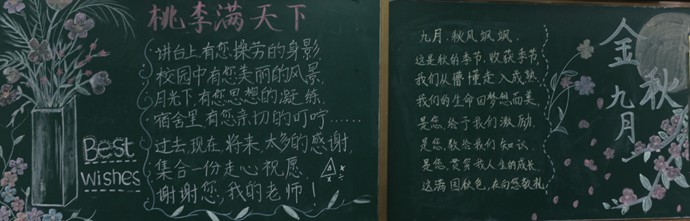 桃李满天下
讲台上,有您操劳的身影,
校园中有您美丽的风景,
月光下,有您思想的凝练,
宿舍里,有您亲切的叮咛……
过去,现在,将来,太多的感谢,
集合一份走心祝愿,
谢谢您,我的老师!
Best
wishes
九月,秋风飒飒,
这是秋的季节,收获季节,
我们从懵懂走入成熟,
我们的生命因梦想而美,
是您,给予我们激励,
是您,教给我们知识,
是您,贯穿我人生的成长,
这满园秋色,在向您敬礼,
金秋
九月